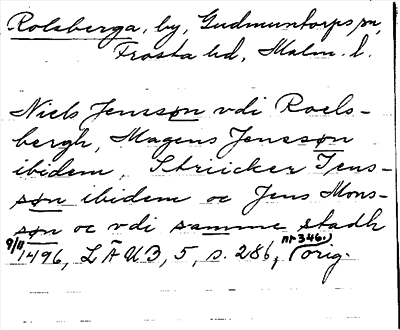 Rolsberga, by, Gudmuntorps sn,
Frosta hd, Malm. l.
Niels Jenssøn vdi Roels-
bergh, Magens Jenssøn
ibidem, Striicker Jens-
søn ibidem oc Jens Mons-
søn oc vdi samme stadh
9/11 1496, LÄUB, 5, s. 286, nr 346. (orig.